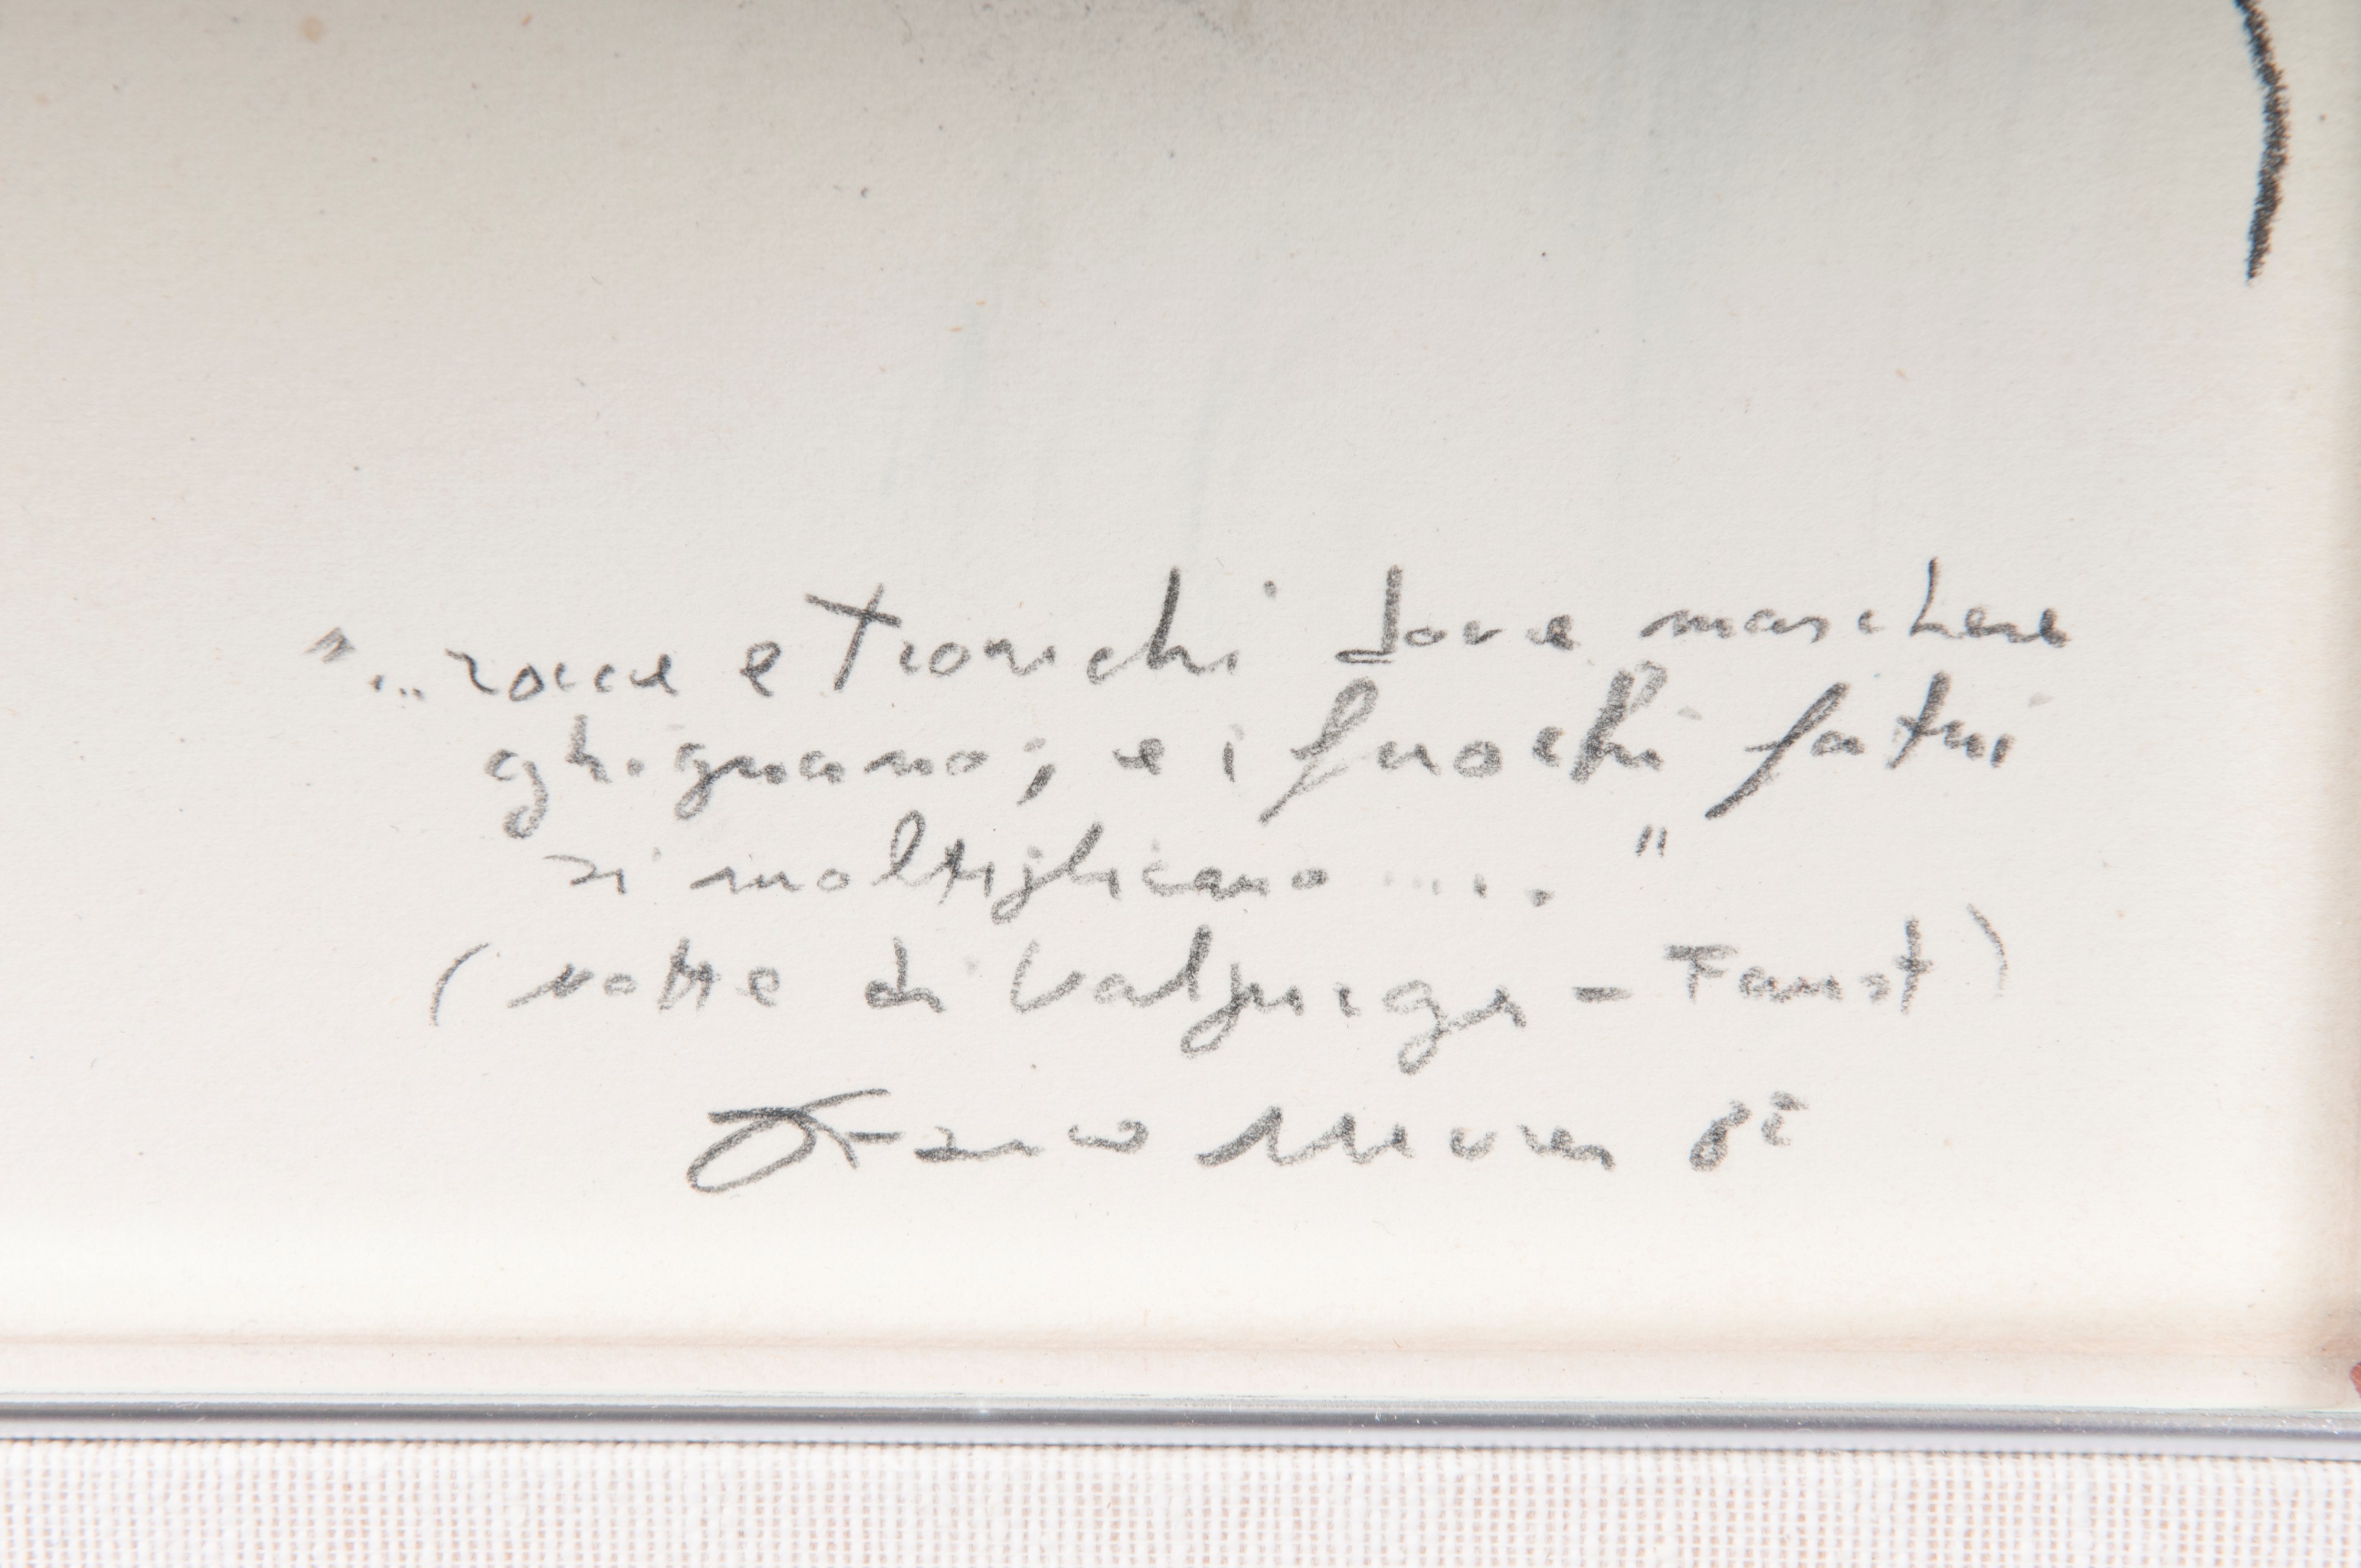 "... rocce e tronchi dove maschere
ghignano; e i fuochi fatui
si moltiplicano .... "
(notte di Valpurga - Faust)
Franco